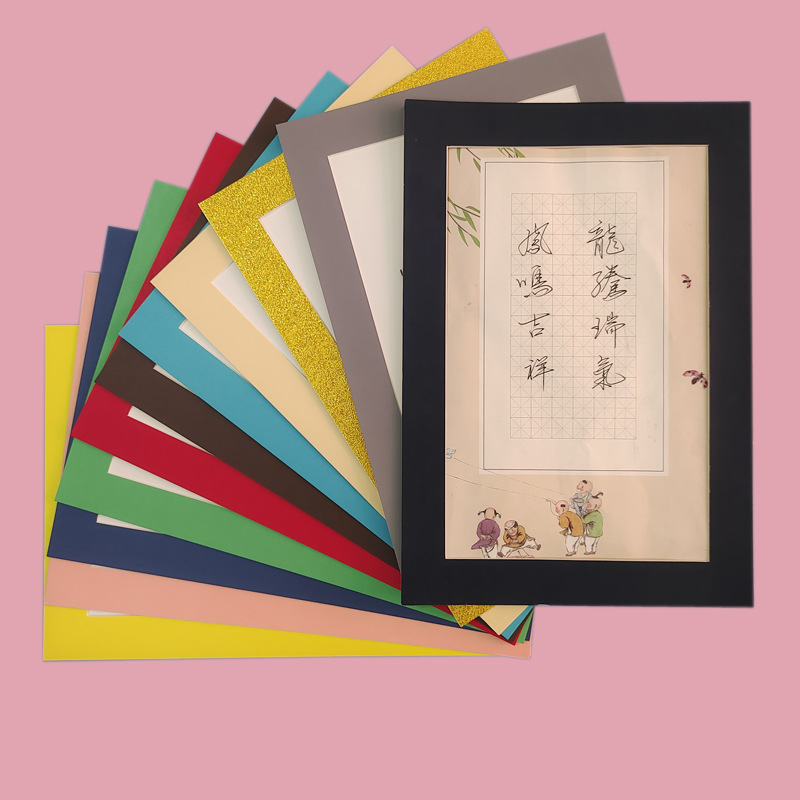 龍騰瑞氣
鳳鳴吉祥